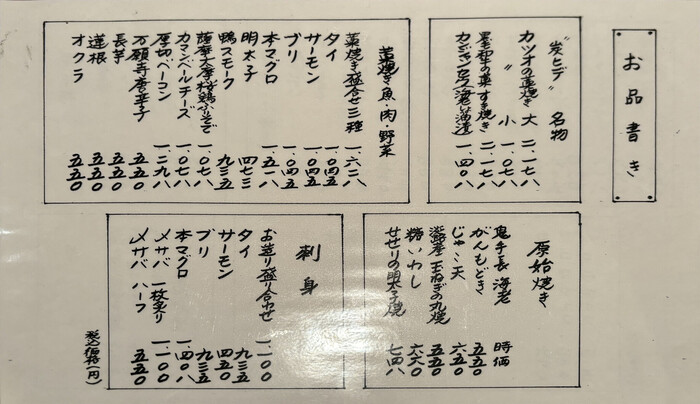 お品書き
"炭ヒデ" 名物
カツオの藁焼き 大 二.一七八
〃 小 一.〇七八
黒毛和牛の藁すき焼き 二.一七八
一.四〇八
藁焼き 魚・肉・野菜
藁焼き盛合せ三種 一.六二八
タイ 一.〇四五
サーモン 一.〇四五
ブリ 一.〇四五
本マグロ 一.五一八
明太子 四七三
鴨スモーク 九三五
一.〇七八
カマンベールチーズ 一.〇七八
厚切ベーコン 一.二九八
万願寺唐辛子 五五〇
長芋 五五〇
蓮根 五五〇
オクラ 五五〇
原始焼き
鬼手長海老 時価
がんもどき 五五〇
じゃこ天 六五〇
淡路産玉ねぎの丸焼 五五〇
糠いわし 六六〇
せせりの明太子焼 七四八
刺身
お造り盛り合わせ 一.一〇〇
タイ 九三五
サーモン 四五〇
ブリ 九三五
本マグロ 一.四〇八
〆サバ 一枚炙り 一.一〇〇
〆サバ ハーフ 五五〇
税込価格(円)